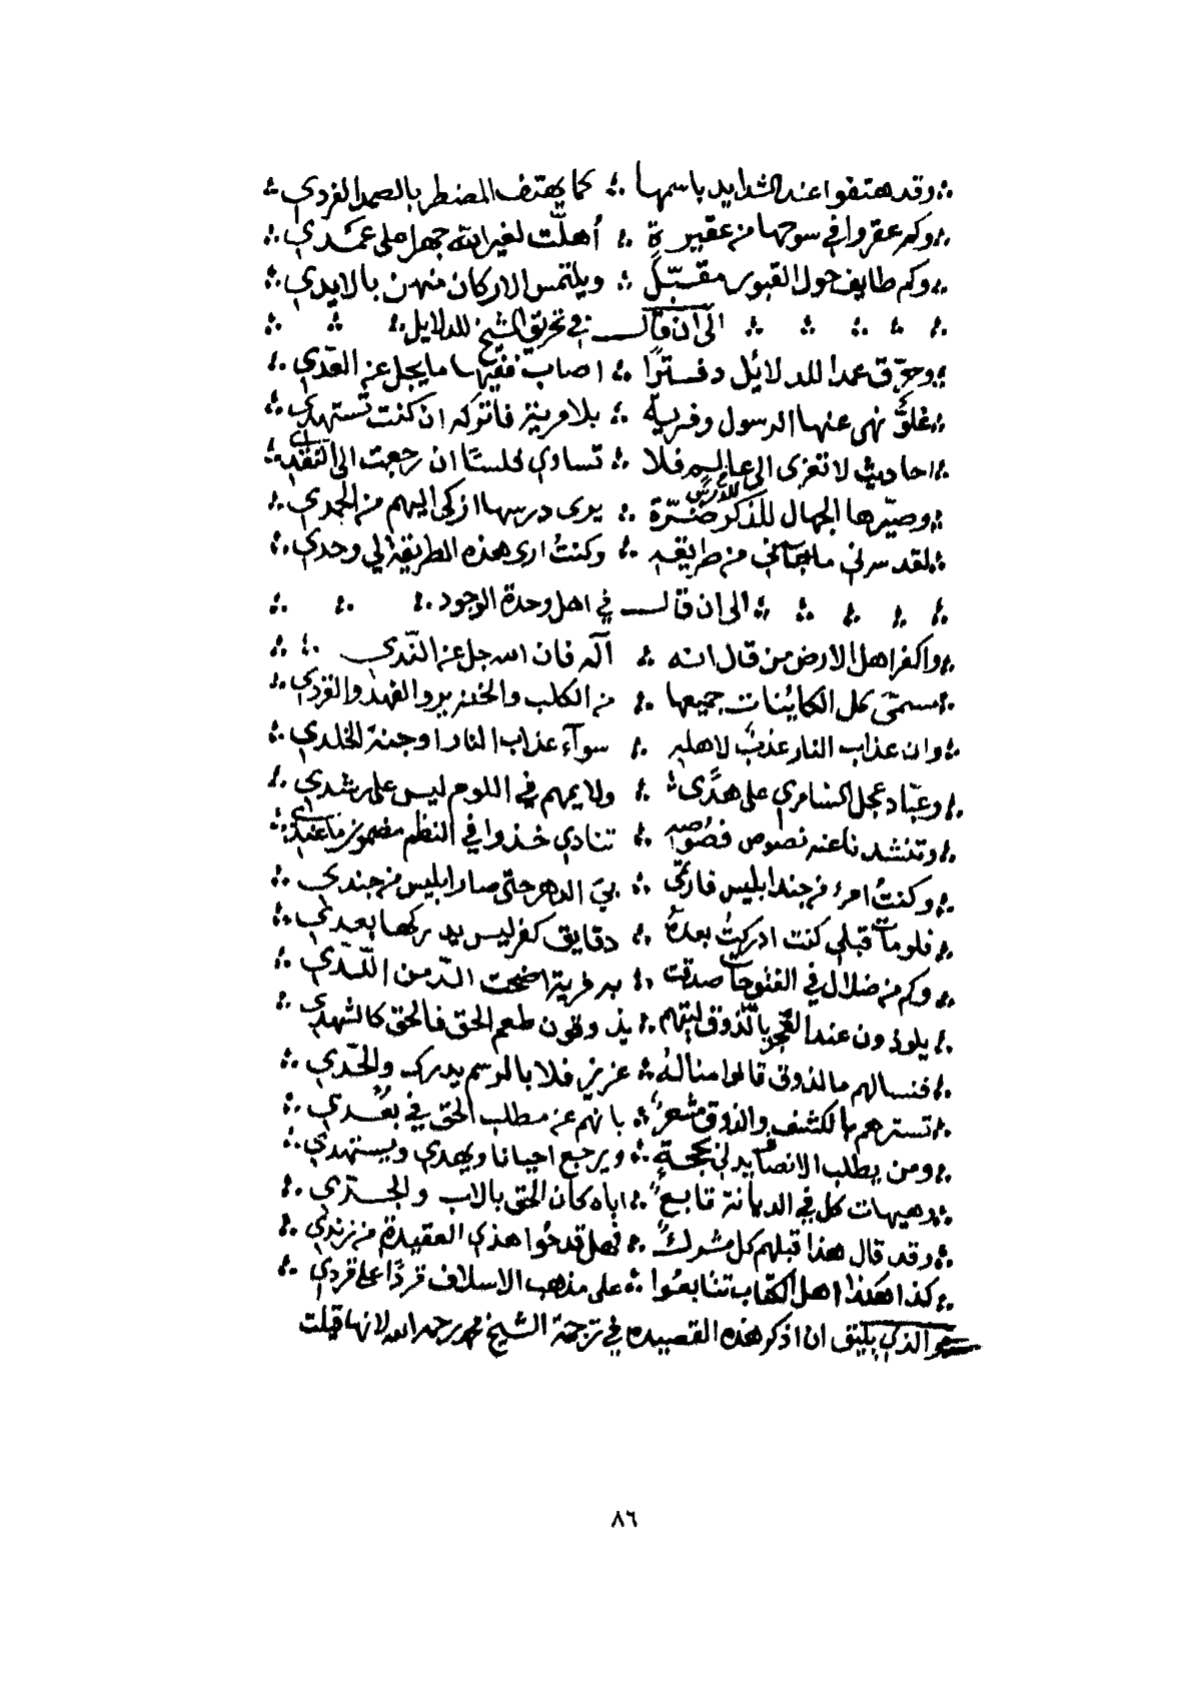 وقد هتفوا عند الشدايد باسمها ∴ كما يهتف المضطر بالصمد الفردي
وكم عقروا في سوحها من عقيرة ∴ أهلّت لغير الله جهرا على عمَدي
وكم طايف حول القبور مقبّل ∴ ويلتمس الاركان منهن بالايدي
الى ان قال في تحريق الشيخ للدلايل
وحرّق عمدا للدلائل دفترًا ∴ اصاب ففيها ما يجل عن العدّي
غلوٌّ نهى عنها الرسول وفرية ∴ بلا مرية فاتركه ان كنت تستهدي
احاديث لا تعزى الى عالم فلا ∴ تساوي فلسًا ان رجعت الى النقدي
وصيّرها الجهال للذكر ضرّة ∴ يرى درسها ازكى اليهم من الحمدي
لقد سرني ما جآني من طريقه ∴ وكنتُ ارى هذه الطريقة لي وحدي
الى ان قال في اهل وحدة الوجود
واكفر اهل الارض من قال انه ∴ آله فان الله جل عن الندّي
مسمّى كل الكائنات جميعها ∴ من الكلب والخنزير والفهد والقردي
وان عذاب النار عذبٌ لاهله ∴ سوآء عذاب النار او جنة الخلدي
وعبّاد عجل السامري على هدًى ∴ ولايمهم في اللوم ليس على رشدي
وتنشدنا عنه نصوص فصُوصه ∴ تنادي خذوا في النظم مضمون ما عندي
وكنتُ امرءً من جند ابليس فارتمى ∴ بي الدهر حتى صار ابليس من جندي
فلو مات قبلي كنت ادركتُ بعدهُ ∴ دقايق كفر ليس يدركها بعدي
وكم من ضلال في الفتوحات صدقت ∴ به فرية اضحت الدّ من اللّدّي
يلوذون عند العجز بالذوق ليتهم ∴ يذوقون طعم الحق فالحق كالشهدي
فنسالهم ما الذوق قالوا مناله ∴ عزيز فلا بالرسم يدرك والحدّي
تسترهم بالكشف والذوق مشعرٌ ∴ بانهم عن مطلب الحق في بُعْدي
ومن يطلب الانصاف يدلي بحجةٍ ∴ ويرجع احيانا ويهدي ويستهدي
وهيهات كل في الديانة تابعٌ ∴ اباه كان الحق بالاب والجدّي
وقد قال هذا قبلهم كل مشركٍ ∴ فهل قدحُوا هذي العقيدة من زندي
كذا هكذا اهل الكتاب تتابعُوا ∴ على مذهب الاسلاف فردًا على فردي
والذي يليق ان اذكر هذه القصيده في ترجمة الشيخ محمد رحمه الله لانها قيلت
٨٦